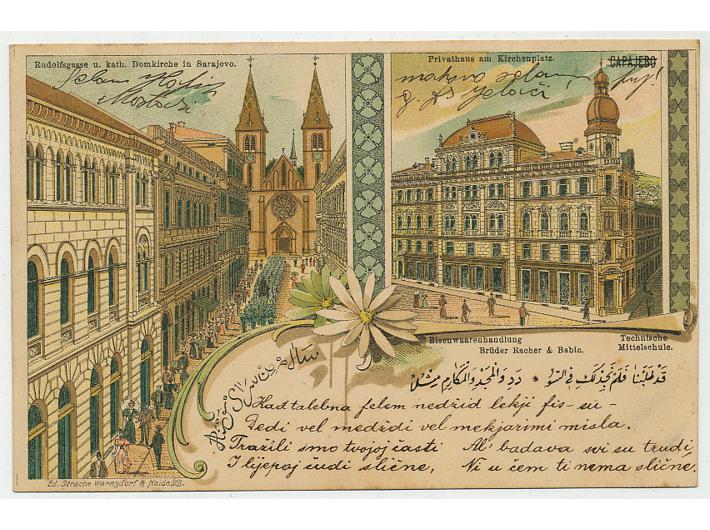 Rudolfsgasse u. kath. Domkirche in Sarajevo.
Privathaus am Kirchenplatz.
САРАЈЕВО
Selam
Eisenwaarenhandlung
Brüder Racher & Babic.
Technische
Mittelschule.
قد طلبنا فلم نجد لك في السؤ * دد والمجد والمكارم مثلا
Kad talebna felem nedžid lekji fis-su
Dedi vel medždi vel mekjarimi misla.
Tražili smo tvojoj časti
Al' badava svi su trudi,
I lijepoj ćudi slične,
Ni u čem ti nema slične.
Ed. Strache Warnsdorf & Haida i/B.